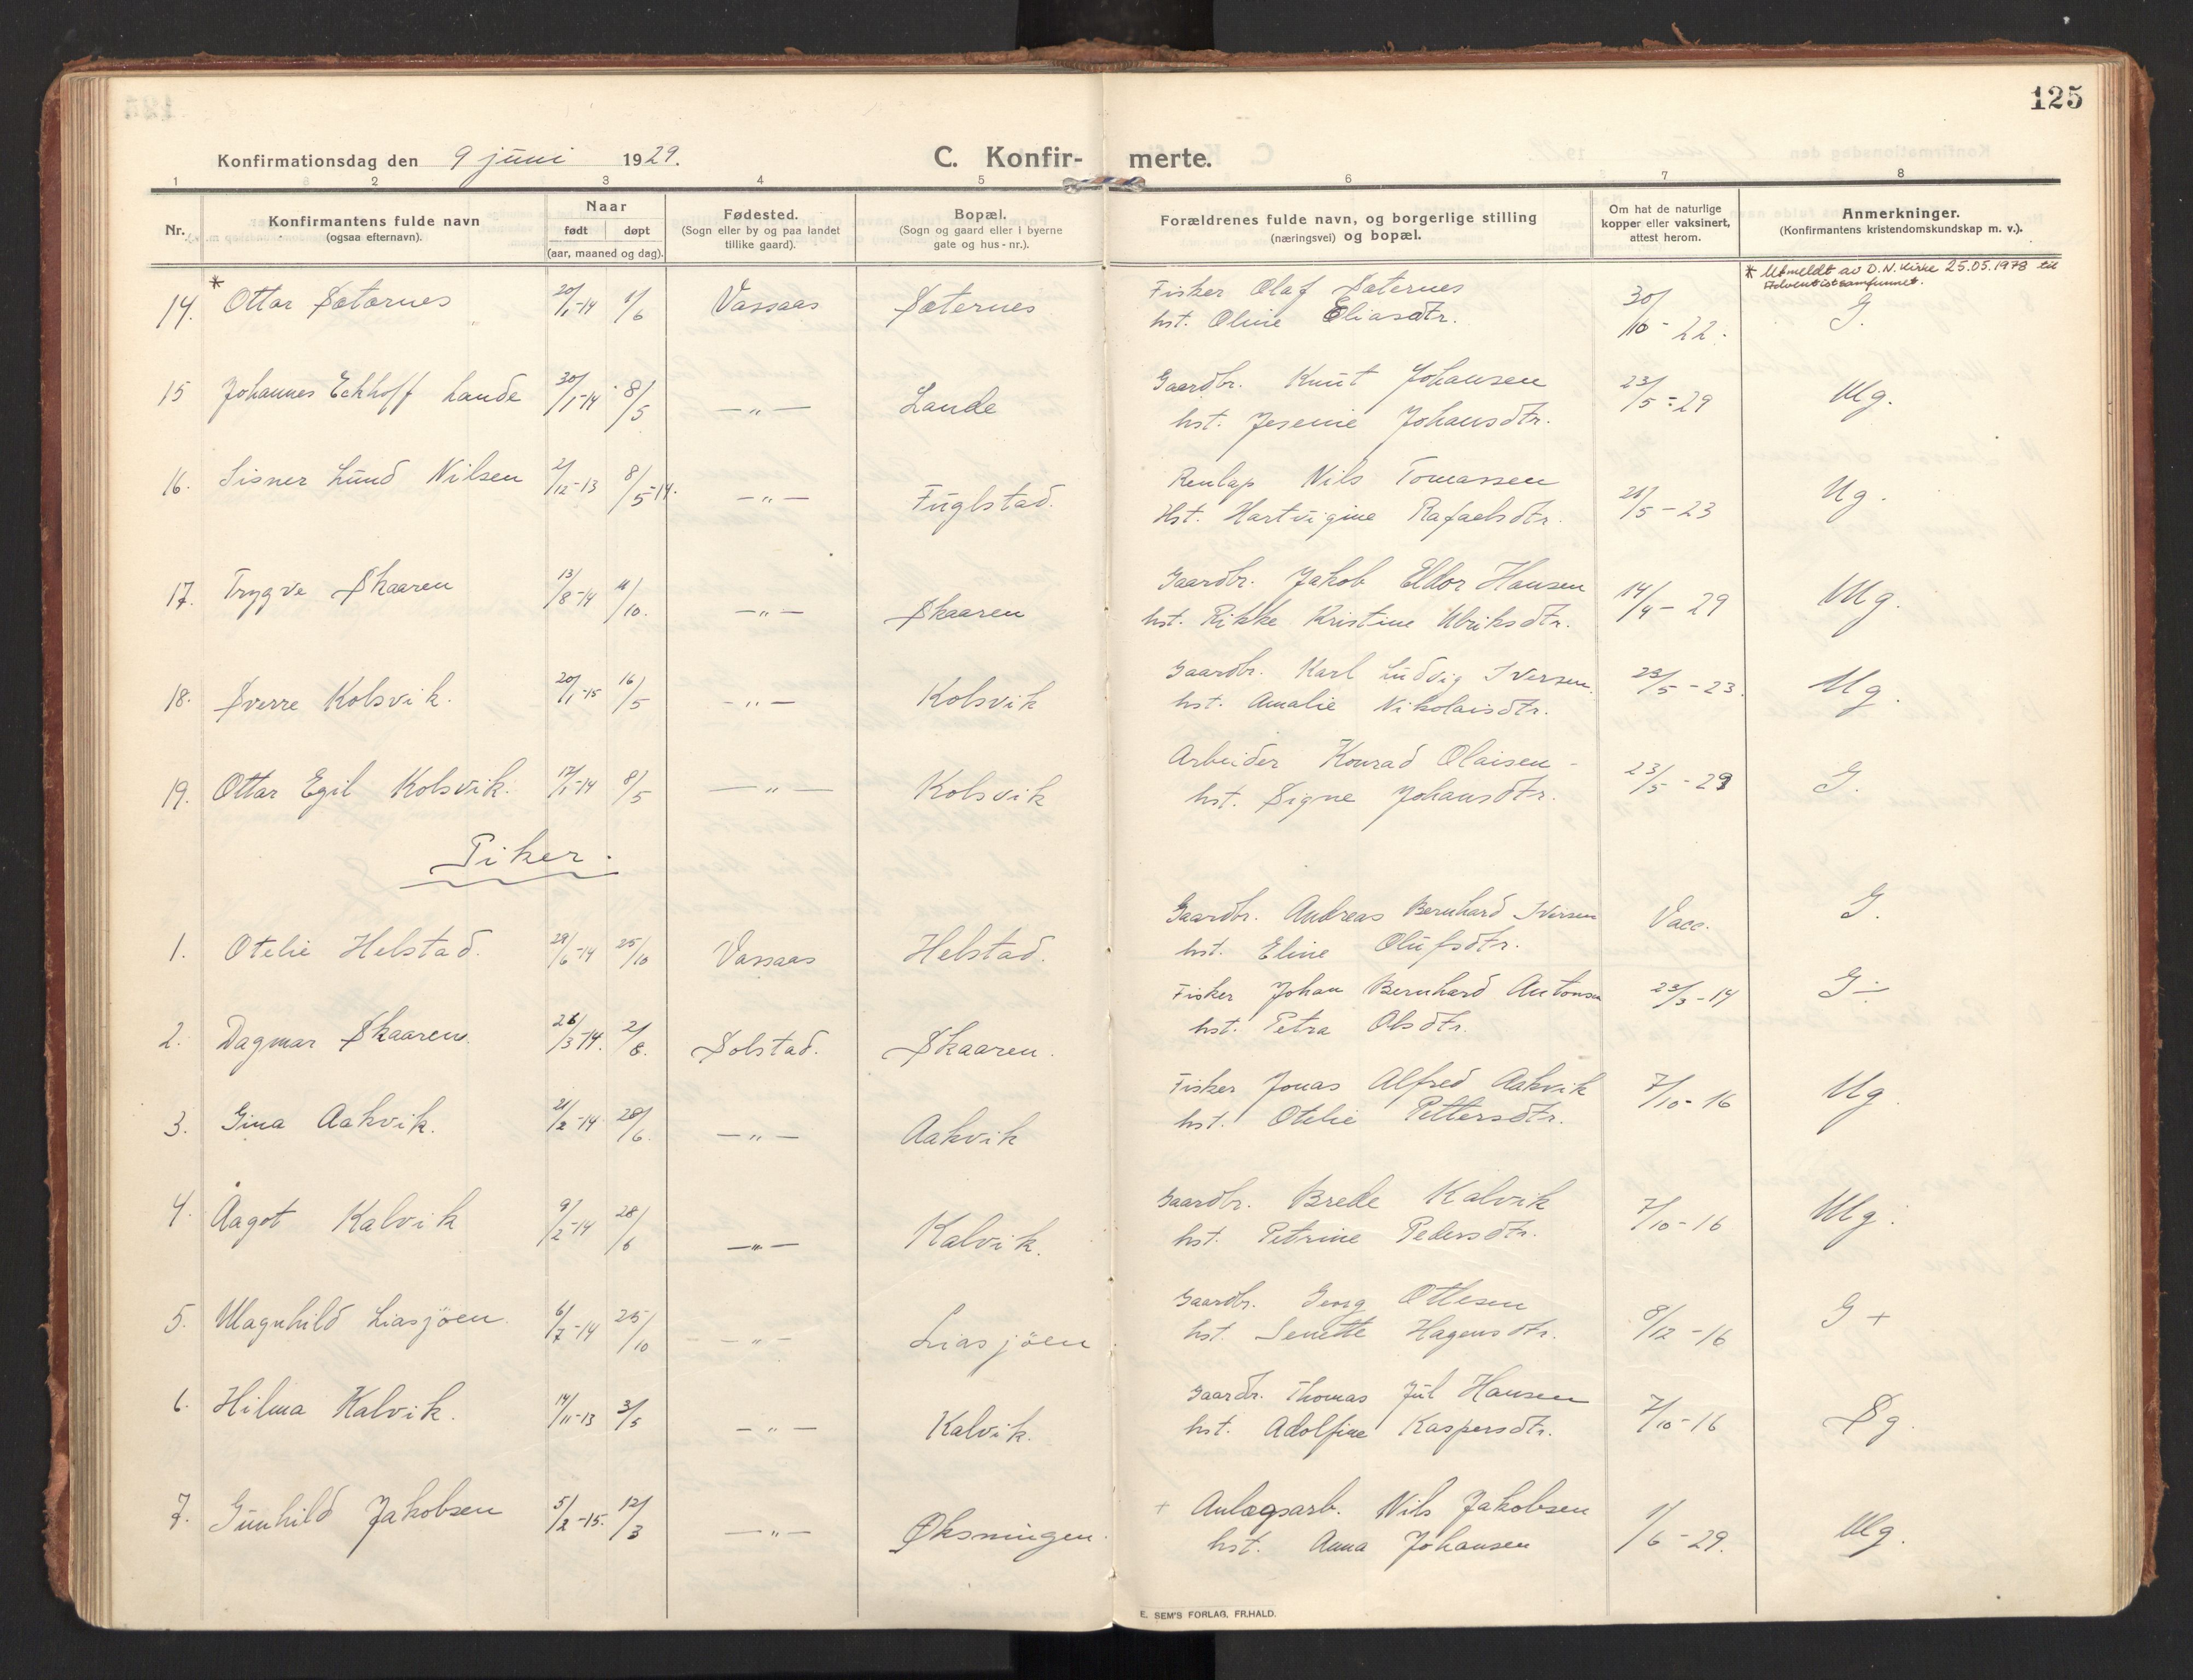 125
Konfirmationsdag den 9 juni 1929.
C. Konfir- merte.
1 2 3 4 5 6 7 8
Nr.
Konfirmantens fulde navn
(ogsaa efternavn).
Naar
født døpt
(aar, maaned og dag).
Fødested.
(Sogn eller by og paa landet
tillike gaard).
Bopæl.
(Sogn og gaard eller i byerne
gate og hus - nr.).
Forældrenes fulde navn, og borgerlige stilling
(næringsvei) og bopæl.
Om hat de naturlige
kopper eller vaksinert,
attest herom.
Anmerkninger.
(Konfirmantens kristendomskundskap m. v.).
* Utmeldt av D. N. Kirke 25.05.1978 til
Adventistsamfunnet.
14. * Ottar Sæternes 20/1-14 1/6 Vassaas Sæternes Fisker Olaf Sæternes 30/10-22. G.
hst. Oline Eliasdtr.
15 Johannes Eckhoff Lande 30/1-14 8/5 —„— Lande Gaardbr. Knut Johansen 23/5-29 Mg.
hst. Jesenie Johansdtr.
16. Sisner Lund Nilsen 2/12-13 8/5-14. —„— Fuglstad. Renlap Nils Tomassen 21/5-23 Ng.
Hst. Hartvigine Rafaelsdtr.
17. Trygve Skaaren 13/8-14 11/10. —„— Skaaren Gaardbr. Jakob Eldor Hansen 14/4-29 Mg.
hst. Rikke Kristine Ulriksdtr.
18. Sverre Kolsvik. 20/1-15 16/5 —„— Kolsvik Gaardbr. Karl Ludvig Iversen. 23/5-23. Mg.
hst. Amalie Nikolaisdtr.
19. Ottar Egil Kolsvik. 17/1-14 8/5 —„— Kolsvik Arbeider Konrad Olaisen - 23/5-29 G.
hst. Signe Johansdtr.
Piker.
1. Otelie Helstad. 29/6-14 25/10 Vassaas Helstad. Gaardbr. Andreas Bernhard Iversen Vacc. G.
hst. Eline Olufsdtr.
2. Dagmar Skaaren. 26/3-14. 2/8. Solstad. Skaaren. Fisker Johan Bernhard Antonsen 23/3-14 G÷
hst. Petra Olsdtr.
3. Gina Aakvik. 21/2-14 28/6. —„— Aakvik Fisker Jonas Alfred Aakvik 7/10-16 Mg.
hst. Otelie Pettersdtr.
4. Aagot Kalvik 9/2-14 28/6 —„— Kalvik. Gaardbr. Brede Kalvik 7/10-16 Mg.
hst. Petrine Pedersdtr.
5. Magnhild Liasjöen. 6/7-14 25/10 —„— Liasjöen Gaardbr. Georg Ottesen 8/12-16 G +
hst. Senette Hagensdtr.
6. Hilma Kalvik. 14/11-13 3/5 —„— Kalvik. Gaardbr. Thomas Jul Hansen 7/10-16 Sg.
hst. Adolfine Kaspersdtr.
7. Gunhild Jakobsen 5/2-15. 12/3 —„— Øksningen. + Anlægsarb. Nils Jakobsen 1/6-29. Mg.
hst. Anna Johansen
E. SEM'S FORLAG, FR.HALD.